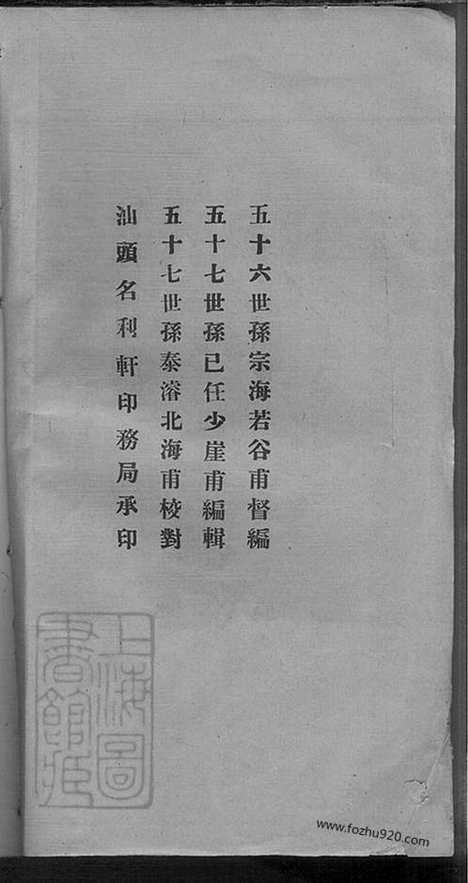 五十六世孫宗海若谷甫督編
五十七世孫已任少崖甫編輯
五十七世孫泰濬北海甫校對
汕頭名利軒印務局承印
上海圖
書館藏
www.fozhu920.com